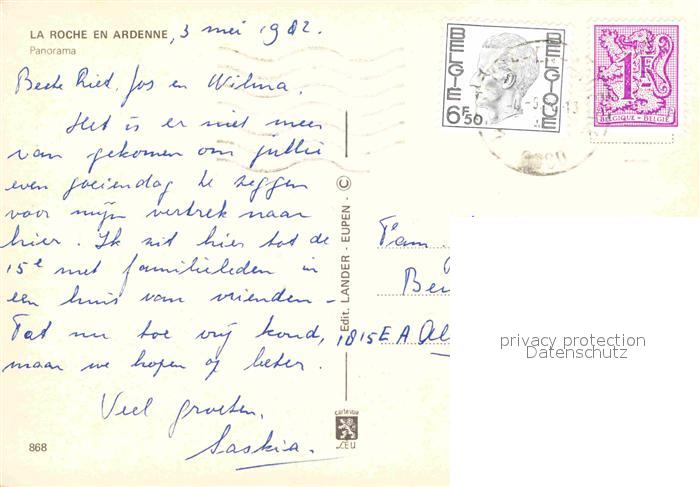 LA ROCHE EN ARDENNE, 3 mei 1982.
Panorama
Beste Riet, Jos en Wilma.
Het is er niet meer
van gekomen om jullie
even goeiendag te zeggen
voor mijn vertrek naar
hier. Ik zit hier tot de
15e met familieleden in
een huis van vrienden –
Tot nu toe vrij koud,
maar we hopen op beter.
Veel groeten,
Saskia.
868
Edit. LANDER - EUPEN - ©
cartevue
LEU
BELGIE
BELGIQUE
6F50
1F
BELGIQUE - BELGIË
Fam.
1815 EA Al
privacy protection
Datenschutz